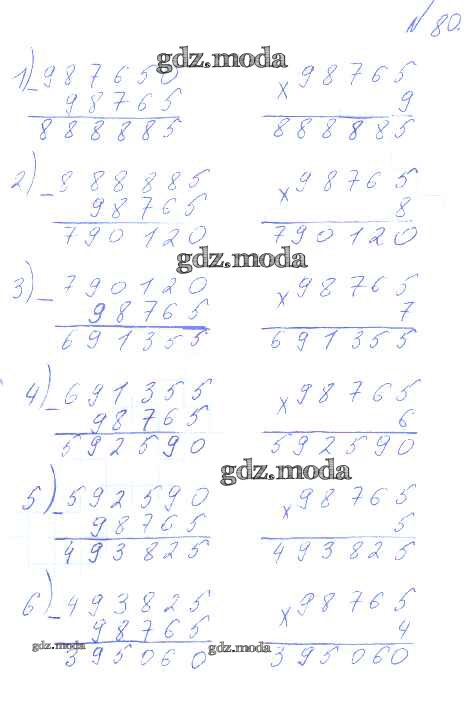 N 80.
gdz.moda
1) - 987650 × 98765
98765 9
888885 888885
2) - 888885 × 98765
98765 8
790120 790120
gdz.moda
3) - 790120 × 98765
98765 7
691355 691355
4) - 691355 × 98765
98765 6
592590 592590
gdz.moda
5) - 592590 × 98765
98765 5
493825 493825
6) - 493825 × 98765
98765 4
gdz.moda gdz.moda
395060 395060